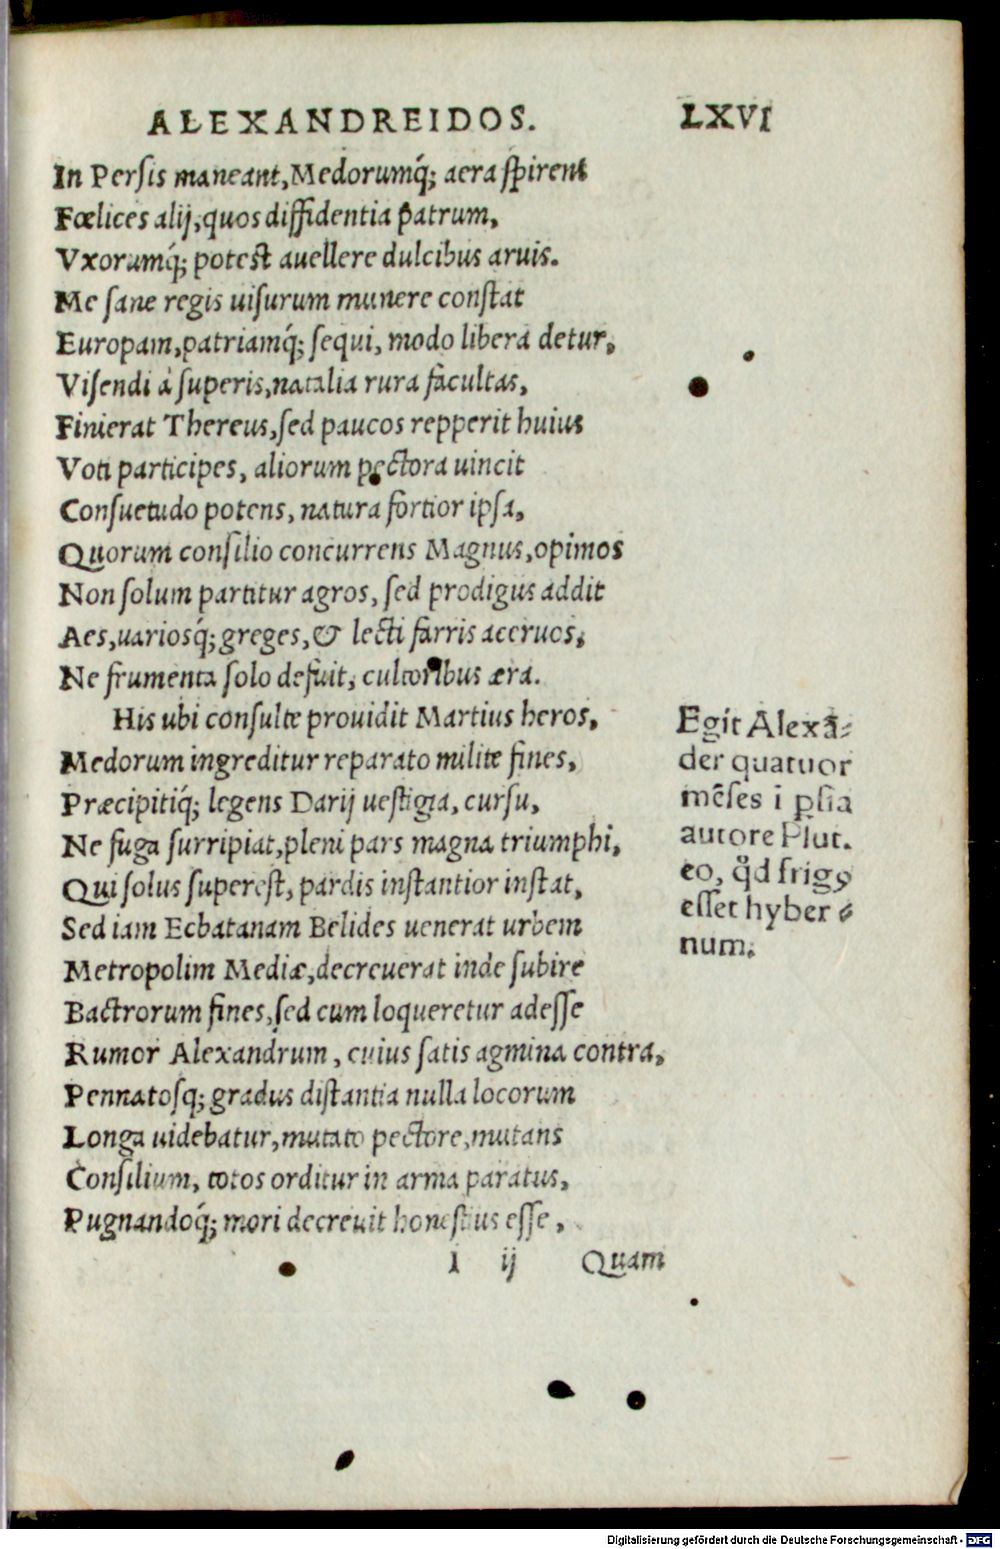 ALEXANDREIDOS. LXVI
In Persis maneant, Medorumq́; aera spirent
Fœlices alij, quos diffidentia patrum,
Vxorumq́; potest auellere dulcibus aruis.
Me sane regis uisurum munere constat
Europam, patriamq́; sequi, modo libera detur,
Visendi à superis, natalia rura facultas,
Finierat Thereus, sed paucos repperit huius
Voti participes, aliorum pectora uincit
Consuetudo potens, natura fortior ipsa,
Quorum consilio concurrens Magnus, opimos
Non solum partitur agros, sed prodigus addit
Aes, uariosq́; greges, & lecti farris aceruos,
Ne frumenta solo desuit, cultoribus æra.
His ubi consulte prouidit Martius heros,
Medorum ingreditur reparato milite fines,
Præcipitiq́; legens Darij uestigia, cursu,
Ne fuga surripiat, pleni pars magna triumphi,
Qui solus superest, pardis instantior instat,
Sed iam Ecbatanam Belides uenerat urbem
Metropolim Mediæ, decreuerat inde subire
Bactrorum fines, sed cum loqueretur adesse
Rumor Alexandrum, cuius satis agmina contra,
Pennatosq; gradus distantia nulla locorum
Longa uidebatur, mutato pectore, mutans
Consilium, totos orditur in arma paratus,
Pugnandoq́; mori decreuit honestius esse,
I ij Quam
Egit Alexā-
der quatuor
mēses i ꝑsia
autore Plut.
eo, q̊d frigꝰ
esset hyber
num.
Digitalisierung gefördert durch die Deutsche Forschungsgemeinschaft - DFG